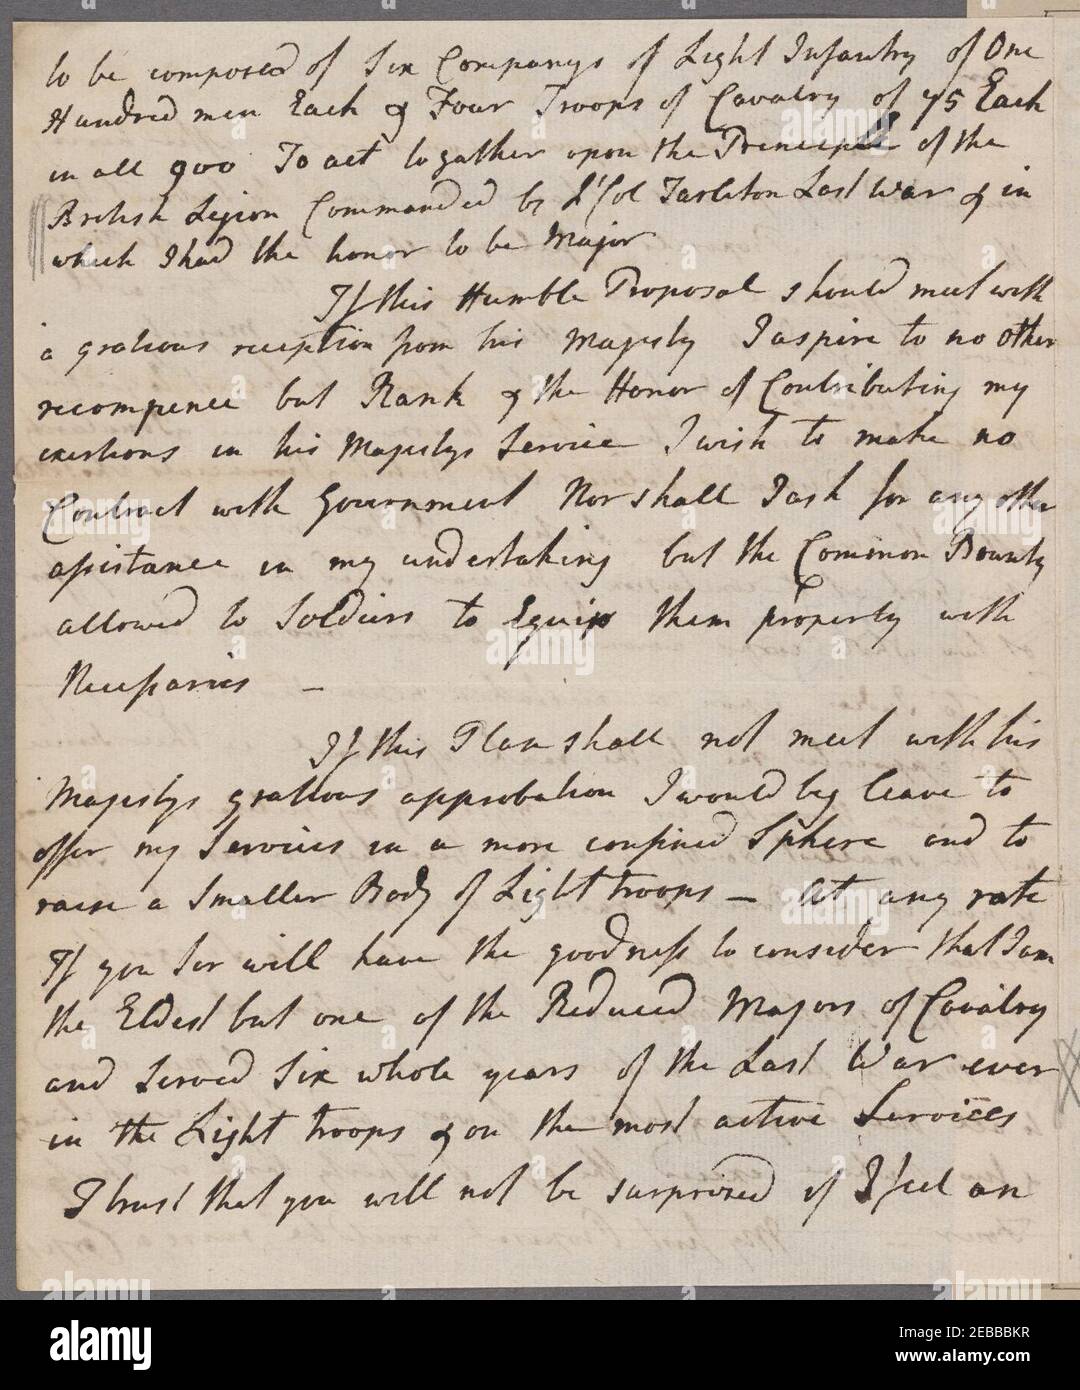 to be composed of Six Companys of Light Infantry of One
Hundred men Each & Four Troops of Cavalry of 75 Each
in all 900 To act together upon the Principle of the
British Legion Commanded by Lt Col Tarleton Last War & in
which I had the honor to be Major
If this Humble Proposal should meet with
a gratious reception from his Majesty I aspire to no other
recompence but Rank & the Honor of Contributing my
exertions in his Majestys Service I wish to make no
Contract with Government Nor shall I ask for any other
assistance in my undertaking but the Common Bounty
allowed to Soldiers to Equip them property with
Necessaries —
If this Plan shall not meet with his
Majestys gratious approbation I would beg leave to
offer my Services in a more confined Sphere and to
raise a Smaller Body of Light troops — At any rate
If you Sir will have the goodness to consider that I am
the Eldest but one of the Reduced Majors of Cavalry
and Served Six whole years of the Last War ever
in the Light troops & on the most active Services
I trust that you will not be surprised if I feel an
alamy
Image ID: 2EBBBKR
www.alamy.com